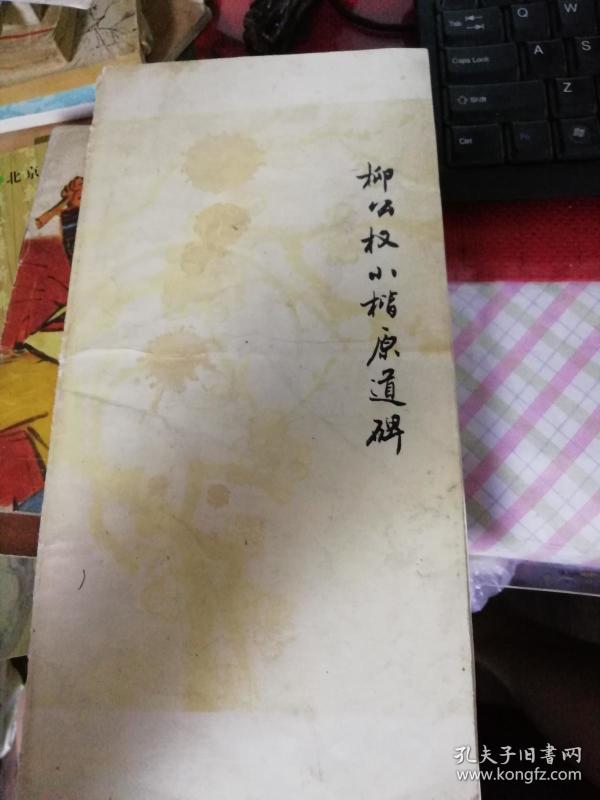 柳公权小楷原道碑
北京
Tab
Q
W
Caps Lock
A
S
Shift
Z
Ctrl
孔夫子旧书网
www.kongfz.com